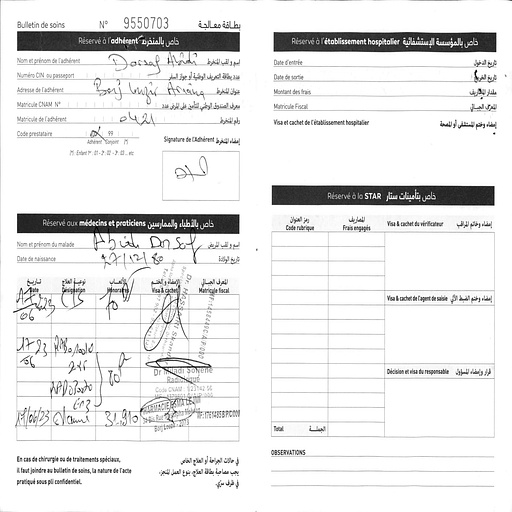 Bulletin de soins N° 9550703 بطاقة معالجة
Réservé à l'adhérent خاص بالمنخرط
Nom et prénom de l'adhérent Dorsaf Abidi إسم و لقب المنخرط
Numéro CIN ou passeport عدد بطاقة التعريف الوطنية أو جواز السفر
Adresse de l'adhérent Borj Louzir Ariana عنوان المنخرط
Matricule CNAM N° معرف الصندوق الوطني للتأمين على المرض عدد
Matricule de l'adhérent 0421 رقم المنخرط
Code prestataire 99
Adhérent Conjoint
Enfant 1er : 01 - 2 : 02 - 3 : 03 ... etc
Signature de l'Adhérent إمضاء المنخرط
Réservé aux médecins et praticiens خاص بالأطباء والممارسين
Nom et prénom du malade Abidi Dorsaf إسم و لقب المريض
Date de naissance 27/12/80 تاريخ الولادة
تاريخ نوعية العلاج الأتعاب الإمضاء و الختم المعرف الجبائي
Date Désignation Honoraires Visa & cachet Matricule fiscal
17/06/23
17/06 23 80
Dr Miladi Sofiene
Radiologue
17/06/23 31.910
En cas de chirurgie ou de traitements spéciaux,
il faut joindre au bulletin de soins, la nature de l'acte
pratiqué sous pli confidentiel.
في حالات الجراحة أو العلاج الخاص
يجب مصاحبة بطاقة العلاج، بنوع العمل المنجز،
في ظرف سري.
Réservé à l'établissement hospitalier خاص بالمؤسسة الإستشفائية
Date d'entrée تاريخ الدخول
Date de sortie تاريخ الخروج
Montant des frais مقدار المصاريف
Matricule Fiscal المعرف الجبائي
Visa et cachet de l'établissement hospitalier إمضاء وختم المستشفى أو المصحة
Réservé à la STAR خاص بتأمينات ستار
رمز العنوان المصاريف
Code rubrique Frais engagés
Visa & cachet du vérificateur إمضاء وختم المراقب
Visa & cachet de l'agent de saisie إمضاء وختم الضبط الآلي
Décision et visa du responsable قرار وإمضاء المسؤول
Total الجملة
OBSERVATIONS